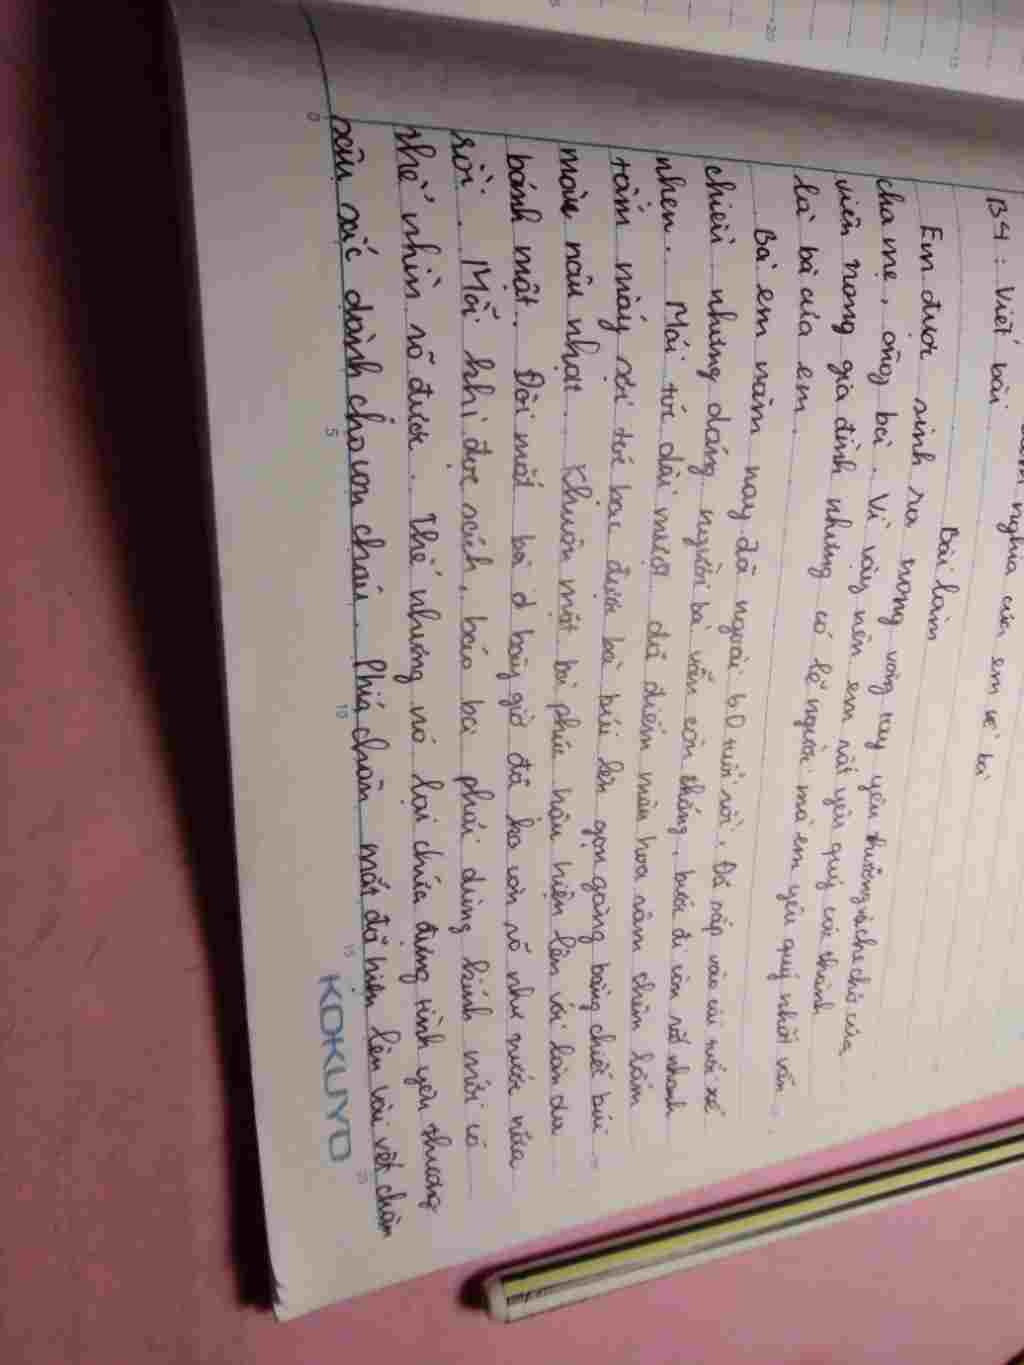 nghĩa của em về bà
B4 : Viết bài
Bài làm
Em được sinh ra trong vòng tay yêu thương và che chở của
cha mẹ, ông bà. Vì vậy nên em rất yêu quý các thành
viên trong gia đình nhưng có lẽ người mà em yêu quý nhất vẫn
là bà của em.
Bà em năm nay đã ngoài 60 tuổi rồi. Đã sắp vào cái tuổi xế
chiều nhưng dáng người bà vẫn còn thẳng, bước đi còn rất nhanh
nhẹn. Mái tóc dài mượt đã điểm màu hoa râm chêm lấm
tấm mấy sợi tóc bạc được bà búi lên gọn gàng bằng chiếc búi
màu nâu nhạt. Khuôn mặt bà phúc hậu hiện lên với làn da
bánh mật. Đôi mắt bà ở bây giờ đã ko còn rõ như trước nữa
rồi. Mỗi khi đọc sách, báo bà phải dùng kính mới có
thể nhìn rõ được. Thế nhưng nó lại chứa đựng tình yêu thương
sâu sắc dành cho con cháu. Phía chân mắt đã hiện lên vài vết chân
0
5
10
15
20
KOKUYO